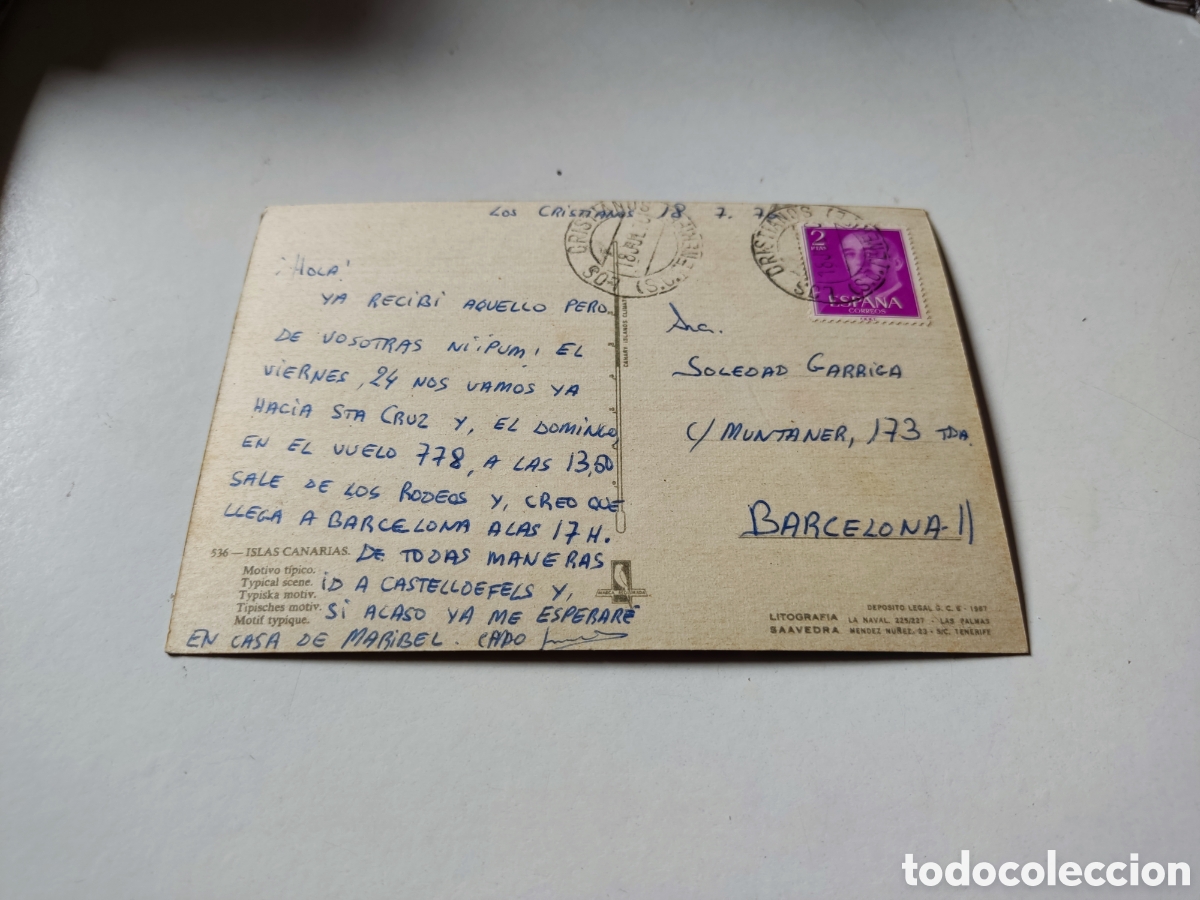 LOS CRISTIANOS 18 7. 7
¡HOLA!
YA RECIBI AQUELLO PERO
DE VOSOTRAS NI ¡PUM! EL
VIERNES, 24 NOS VAMOS YA
HACIA STA CRUZ Y, EL DOMINGO
EN EL VUELO 778, A LAS 13,50
SALE DE LOS RODEOS Y, CREO QUE
LLEGA A BARCELONA A LAS 17 H.
DE TODAS MANERAS
ID A CASTELLDEFELS Y,
SI ACASO YA ME ESPERARÉ
EN CASA DE MARIBEL.
536 — ISLAS CANARIAS.
Motivo típico.
Typical scene.
Typiska motiv.
Tipisches motiv.
Motif typique.
LOS CRISTIANOS (S.C. TENERIFE)
18 JUL
CANARY ISLANDS
MARCA REGISTRADA
LOS CRISTIANOS (S.C. TENERIFE)
2
PTAS
ESPAÑA
CORREOS
Sra.
SOLEDAD GARRIGA
C/ MUNTANER, 173 TDA.
BARCELONA-11
DEPOSITO LEGAL G. C. 5 - 1967
LITOGRAFIA LA NAVAL, 225/227 - LAS PALMAS
SAAVEDRA MENDEZ NUÑEZ, 23 - S/C. TENERIFE
todocoleccion